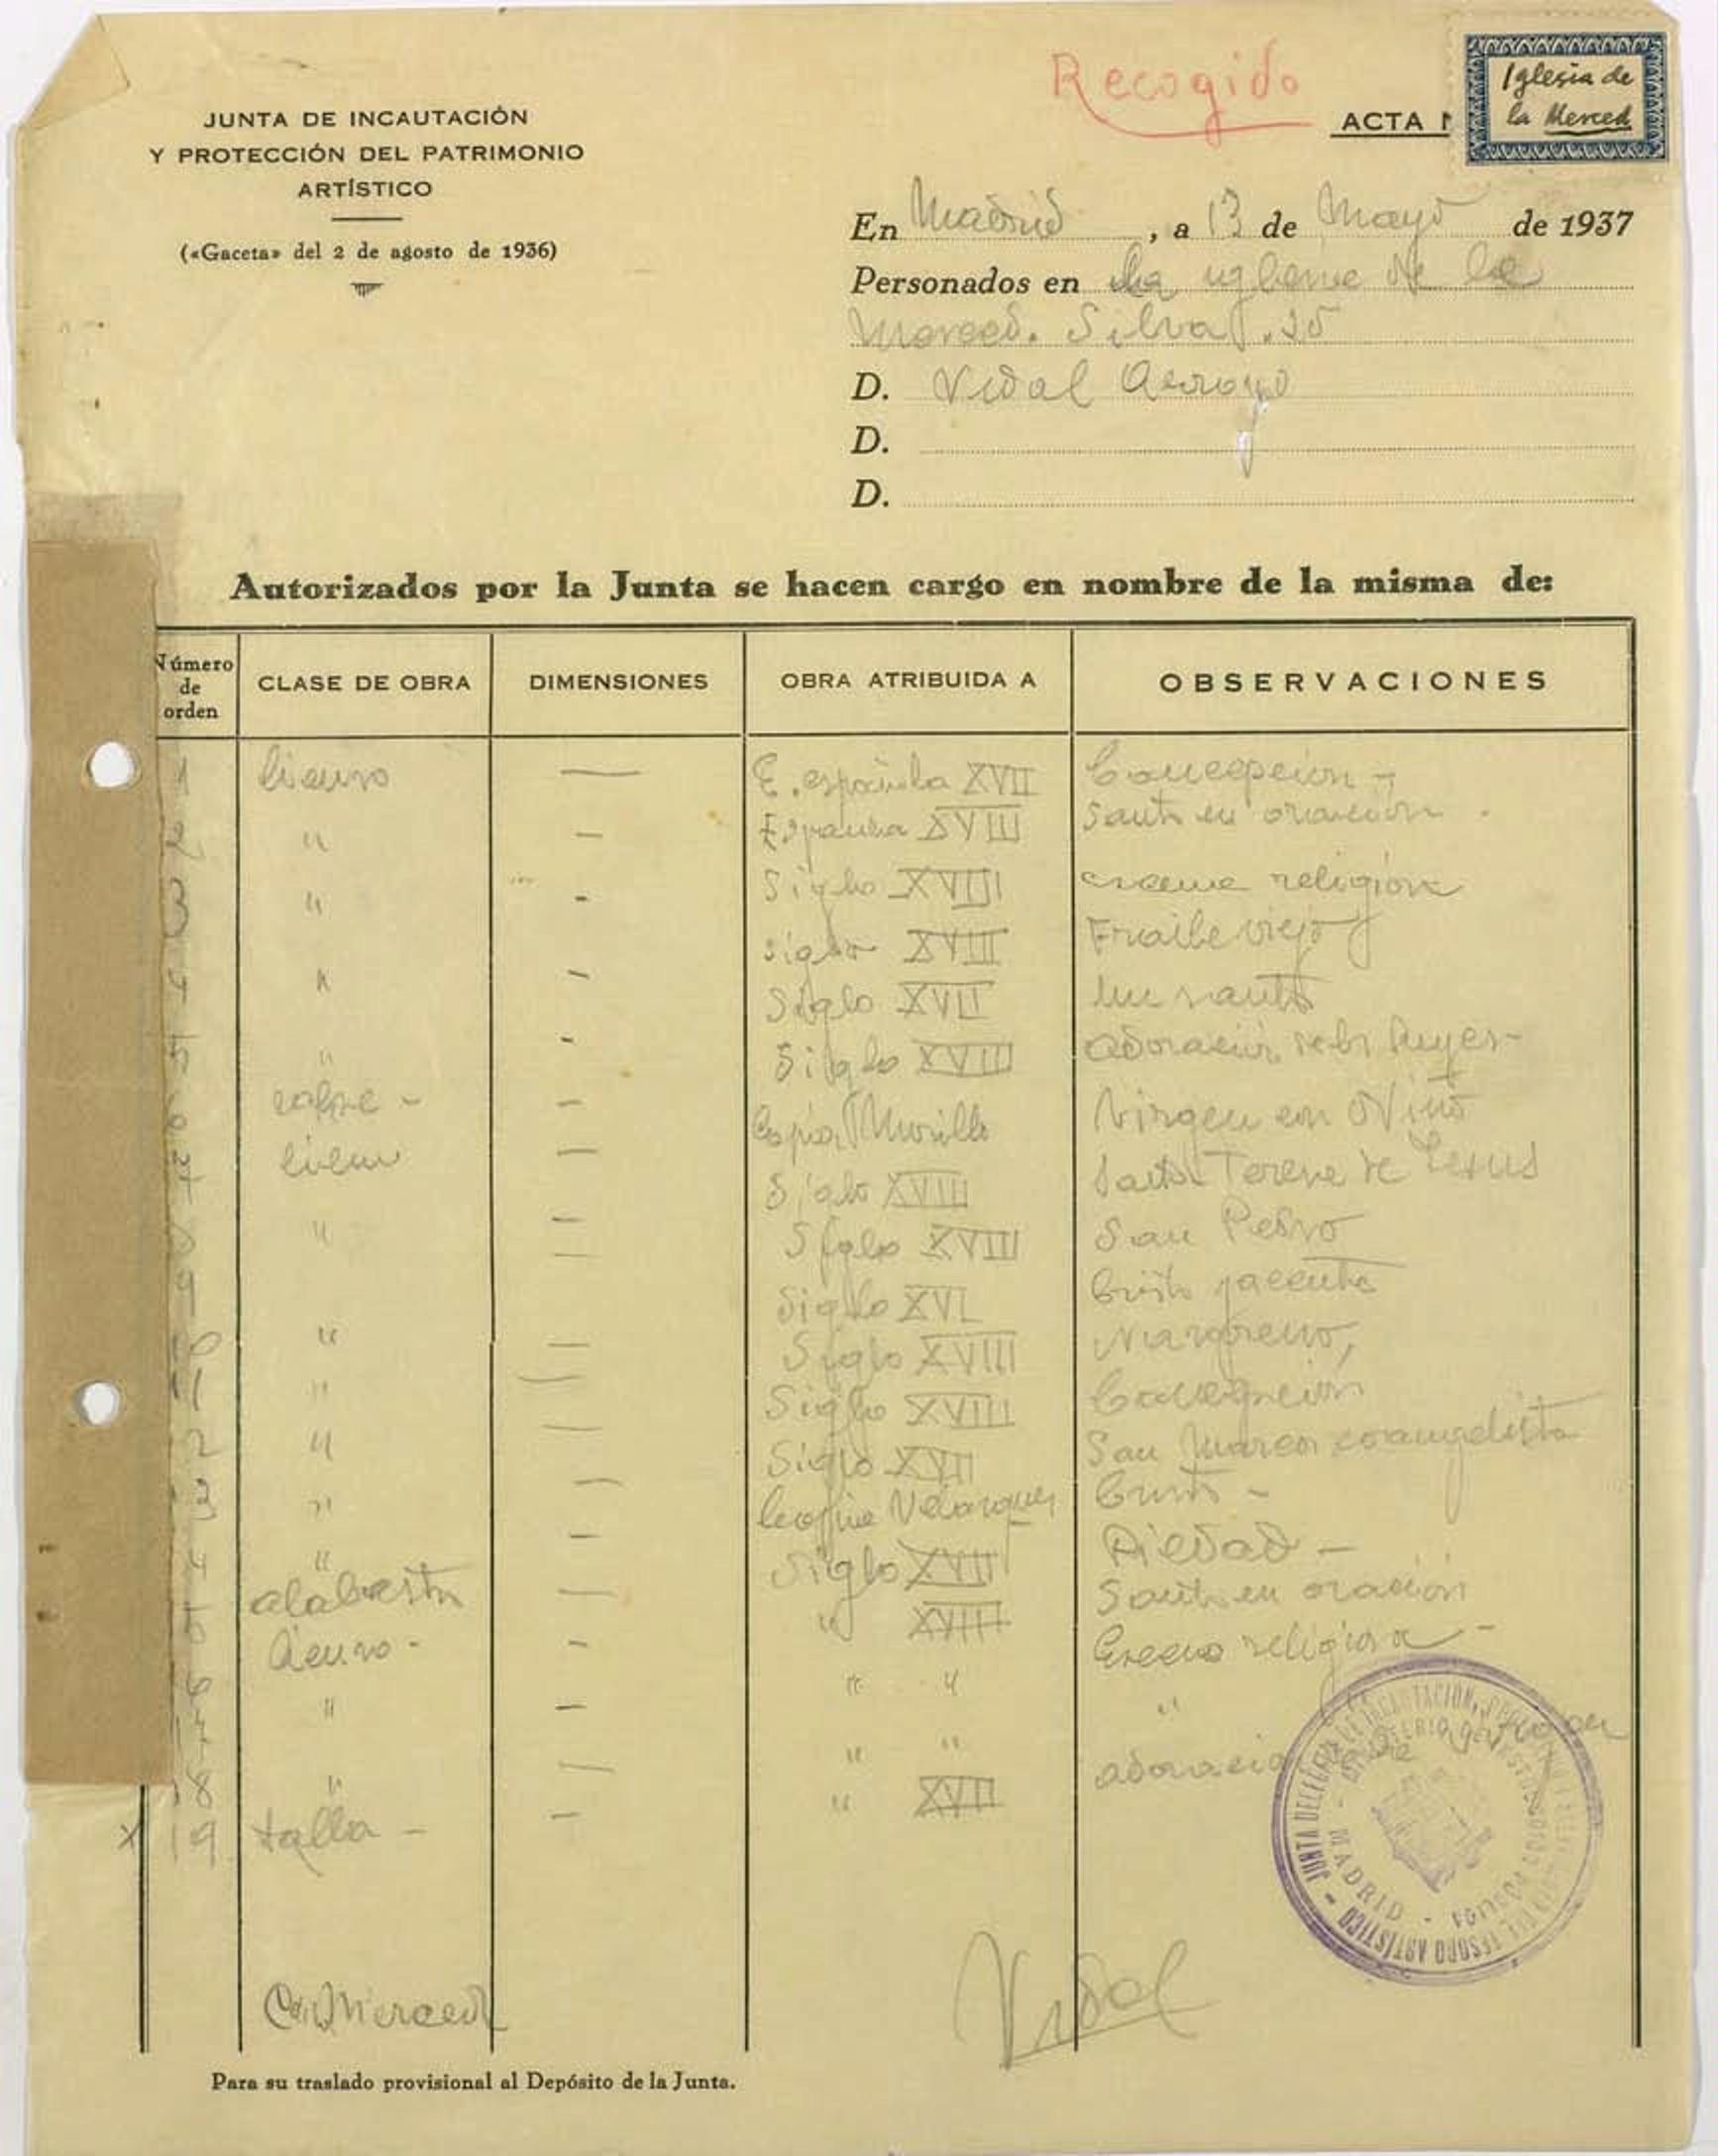 Recogido
Iglesia de
la Merced
ACTA
JUNTA DE INCAUTACIÓN
Y PROTECCIÓN DEL PATRIMONIO
ARTÍSTICO
(«Gaceta» del 2 de agosto de 1936)
En Madrid, a 13 de Mayo de 1937
Personados en la iglesia de la
Merced. Silva
D. Vidal Arroyo
D.
D.
Autorizados por la Junta se hacen cargo en nombre de la misma de:
Número de orden CLASE DE OBRA DIMENSIONES OBRA ATRIBUIDA A OBSERVACIONES
1 lienzo — E. española XVII Concepcion -
2 " — Española XVIII Santo en oracion .
3 " - Siglo XVIII escena religiosa
4 " - siglo XVIII Fraile viejo
5 " - Siglo XVII un santo
6 cobre - — Siglo XVIII adoración de los Reyes -
7 lienzo — Copia Murillo Virgen con Niño
8 " — Siglo XVIII Santa Teresa de Jesus
9 — Siglo XVIII San Pedro
10 " — Siglo XVI Cristo yacente
11 " — Siglo XVIII Nazareno,
12 " — Siglo XVIII Concepcion
13 " — Siglo XVII San Marcos evangelista
14 " — Copia Velazquez Cristo -
15 alabastro — Siglo XVII Piedad -
16 lienzo - - " XVIII Santo en oración
17 " — " " Escena religiosa -
18 " — " " "
x 19 talla - — " XVII adoracion de
Merced
Vidal
JUNTA DELEGADA DE INCAUTACION, TESORO ARTÍSTICO - MADRID -
Para su traslado provisional al Depósito de la Junta.